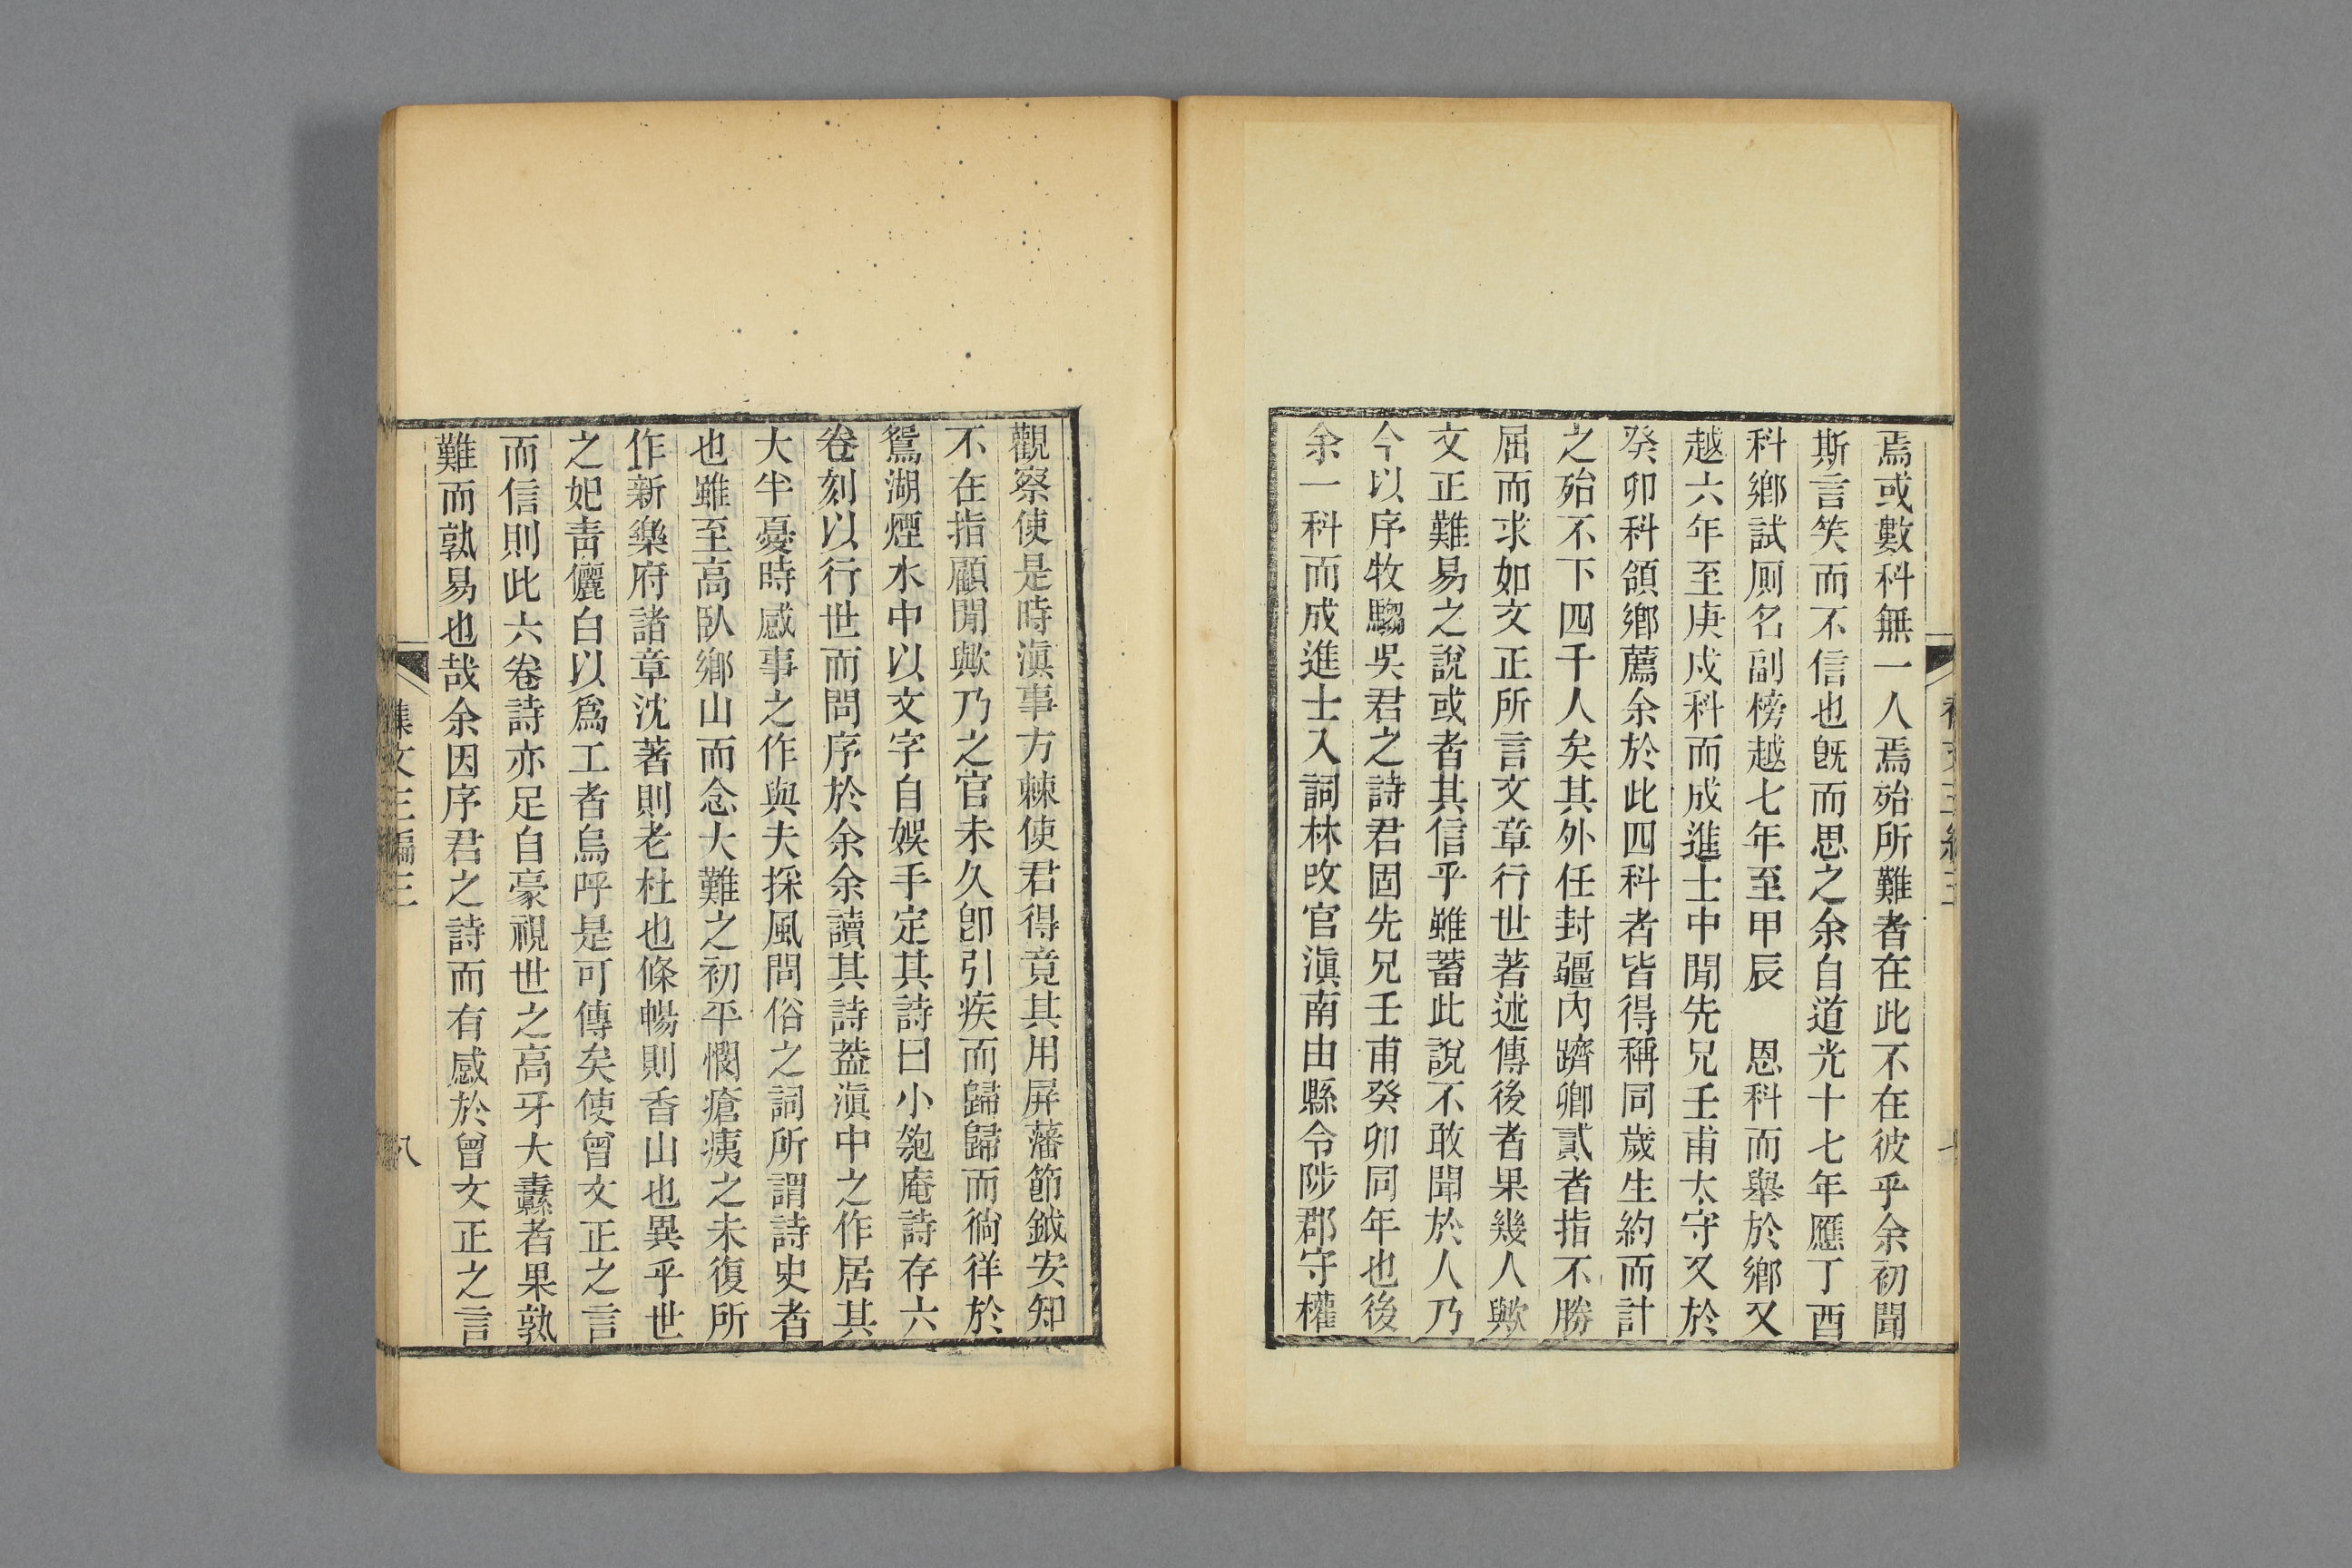 焉或數科無一人焉殆所難者在此不在彼乎余初聞
斯言笑而不信也旣而思之余自道光十七年應丁酉
科鄉試厠名副榜越七年至甲辰　恩科而舉於鄉又
越六年至庚戌科而成進士中閒先兄壬甫太守又於
癸卯科領鄉薦余於此四科者皆得稱同歲生約而計
之殆不下四千人矣其外任封疆內躋卿貳者指不勝
屈而求如文正所言文章行世著述傳後者果幾人歟
文正難易之說或者其信乎雖蓄此說不敢聞於人乃
今以序牧騶吳君之詩君固先兄壬甫癸卯同年也後
余一科而成進士入詞林改官滇南由縣令陟郡守權
觀察使是時滇事方棘使君得竟其用屏藩節鉞安知
不在指顧閒歟乃之官未久卽引疾而歸歸而徜徉於
鴛湖煙水中以文字自娛手定其詩曰小匏庵詩存六
卷刻以行世而問序於余余讀其詩葢滇中之作居其
大半憂時感事之作與夫採風問俗之詞所謂詩史者
也雖至高臥鄉山而念大難之初平憫瘡痍之未復所
作新樂府諸章沈著則老杜也條暢則香山也異乎世
之妃靑儷白以爲工者烏呼是可傳矣使曾文正之言
而信則此六卷詩亦足自豪視世之高牙大纛者果孰
難而孰易也哉余因序君之詩而有感於曾文正之言
集文三編三
八